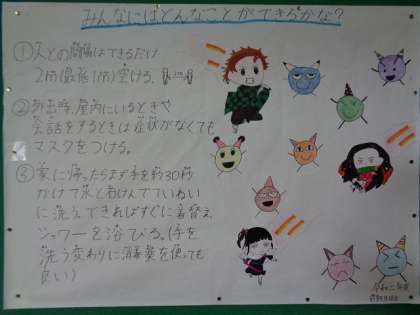 みんなにはどんなことができるかな?
①人との間隔はできるだけ
2m(最低1m)空ける。
②外出時、屋内にいるときや
会話をするときは症状がなくても
マスクをつける。
③家に帰ったらまず手を約30秒
かけて水と石けんでていねい
に洗う。できればすぐに着替え、
シャワーを浴びる。(手を
洗う変わりに消毒薬を使っても
良い)
令和二年度